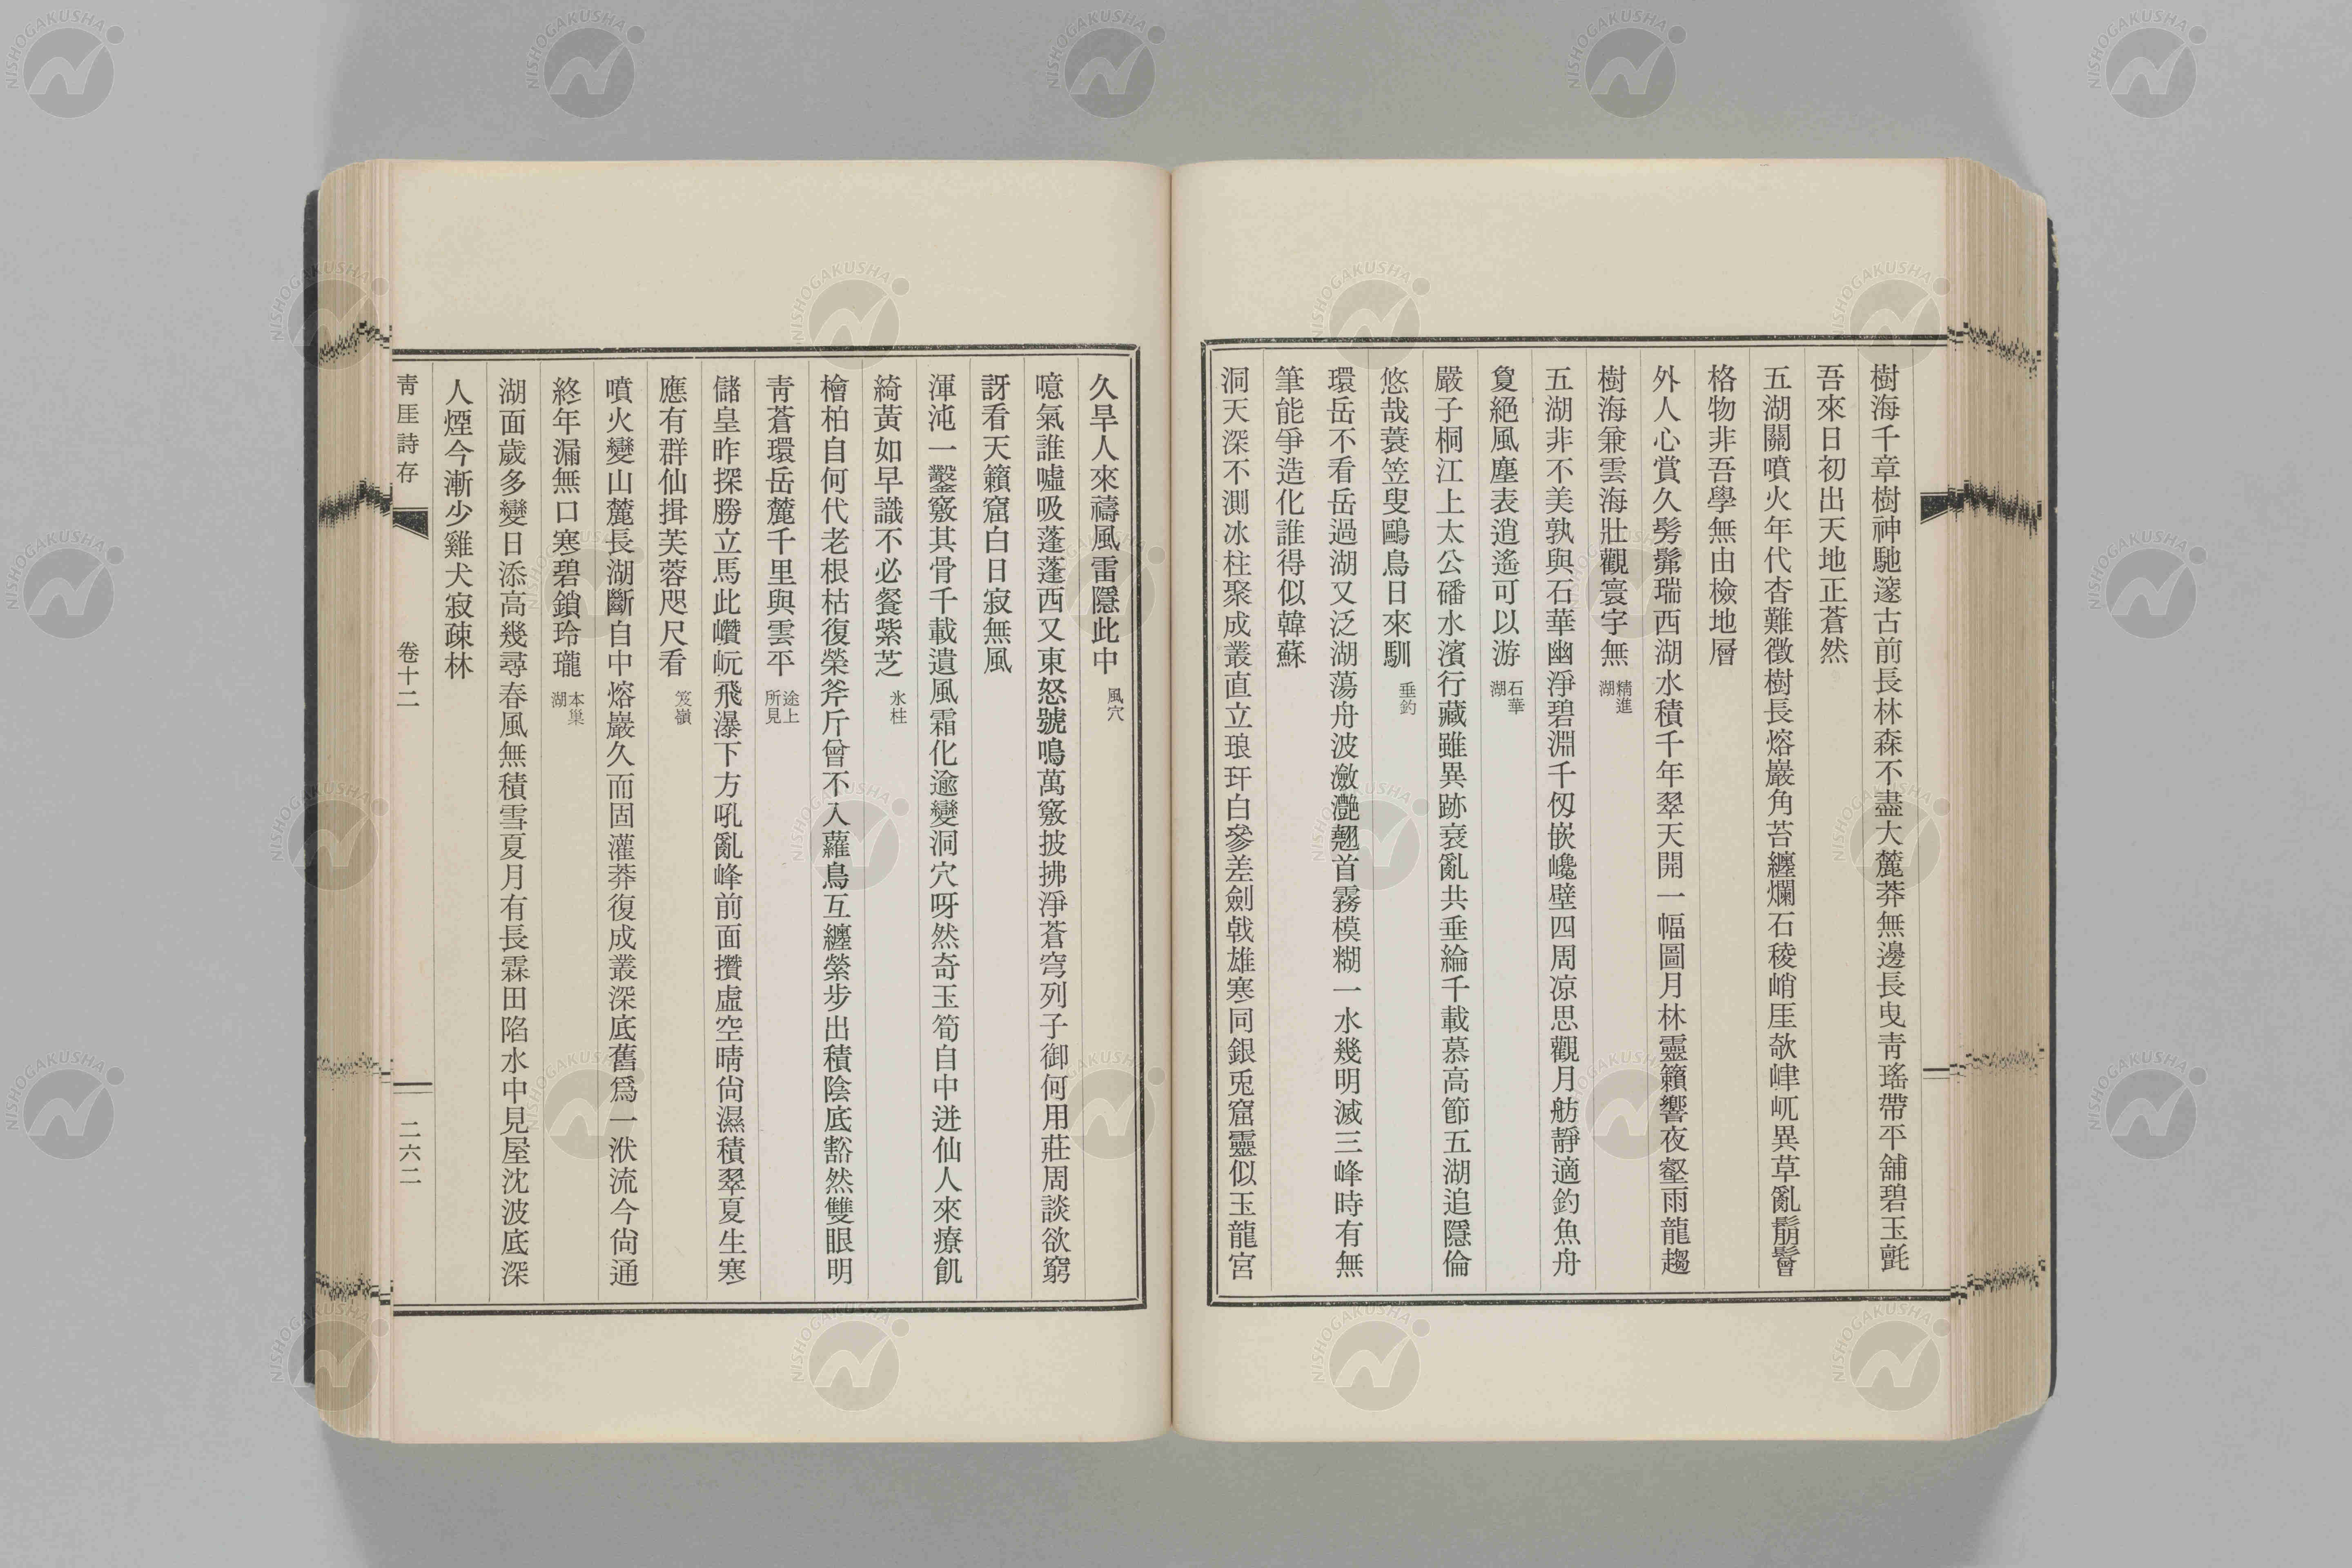 樹海千章樹神馳邃古前長林森不盡大麓莽無邊長曳靑瑤帶平舖碧玉氈
吾來日初出天地正蒼然
五湖關噴火年代杳難徵樹長熔巖角苔纏爛石稜峭厓欹嵂屼異草亂鬅鬙
格物非吾學無由檢地層
外人心賞久髣髴瑞西湖水積千年翠天開一幅圖月林靈籟響夜壑雨龍趨
樹海兼雲海壯觀寰宇無 精進湖
五湖非不美孰與石華幽淨碧淵千仭嵌巉壁四周凉思觀月舫靜適釣魚舟
敻絕風塵表逍遙可以游 石華湖
嚴子桐江上太公磻水濱行藏雖異跡衰亂共垂綸千載慕高節五湖追隱倫
悠哉蓑笠叟鷗鳥日來馴 垂釣
環岳不看岳過湖又泛湖蕩舟波瀲灩翹首霧模糊一水幾明滅三峰時有無
筆能爭造化誰得似韓蘇
洞天深不測冰柱聚成叢直立琅玕白參差劍戟雄寒同銀兎窟靈似玉龍宮
久旱人來禱風雷隱此中 風穴
噫氣誰噓吸蓬蓬西又東怒號鳴萬竅披拂淨蒼穹列子御何用莊周談欲窮
訝看天籟窟白日寂無風
渾沌一鑿竅其骨千載遺風霜化逾變洞穴呀然奇玉筍自中迸仙人來療飢
綺黃如早識不必餐紫芝 氷柱
檜柏自何代老根枯復榮斧斤曾不入蘿鳥互纏縈步出積陰底豁然雙眼明
靑蒼環岳麓千里與雲平 途上所見
儲皇昨探勝立馬此巑岏飛瀑下方吼亂峰前面攢虛空晴尙濕積翠夏生寒
應有群仙揖芙蓉咫尺看 笈嶺
噴火變山麓長湖斷自中熔巖久而固灌莽復成叢深底舊爲一洑流今尙通
終年漏無口寒碧鎖玲瓏 本巢湖
湖面歲多變日添高幾尋春風無積雪夏月有長霖田陷水中見屋沈波底深
人煙今漸少雞犬寂疎林
靑厓詩存 卷十二 二六二
NISHOGAKUSHA